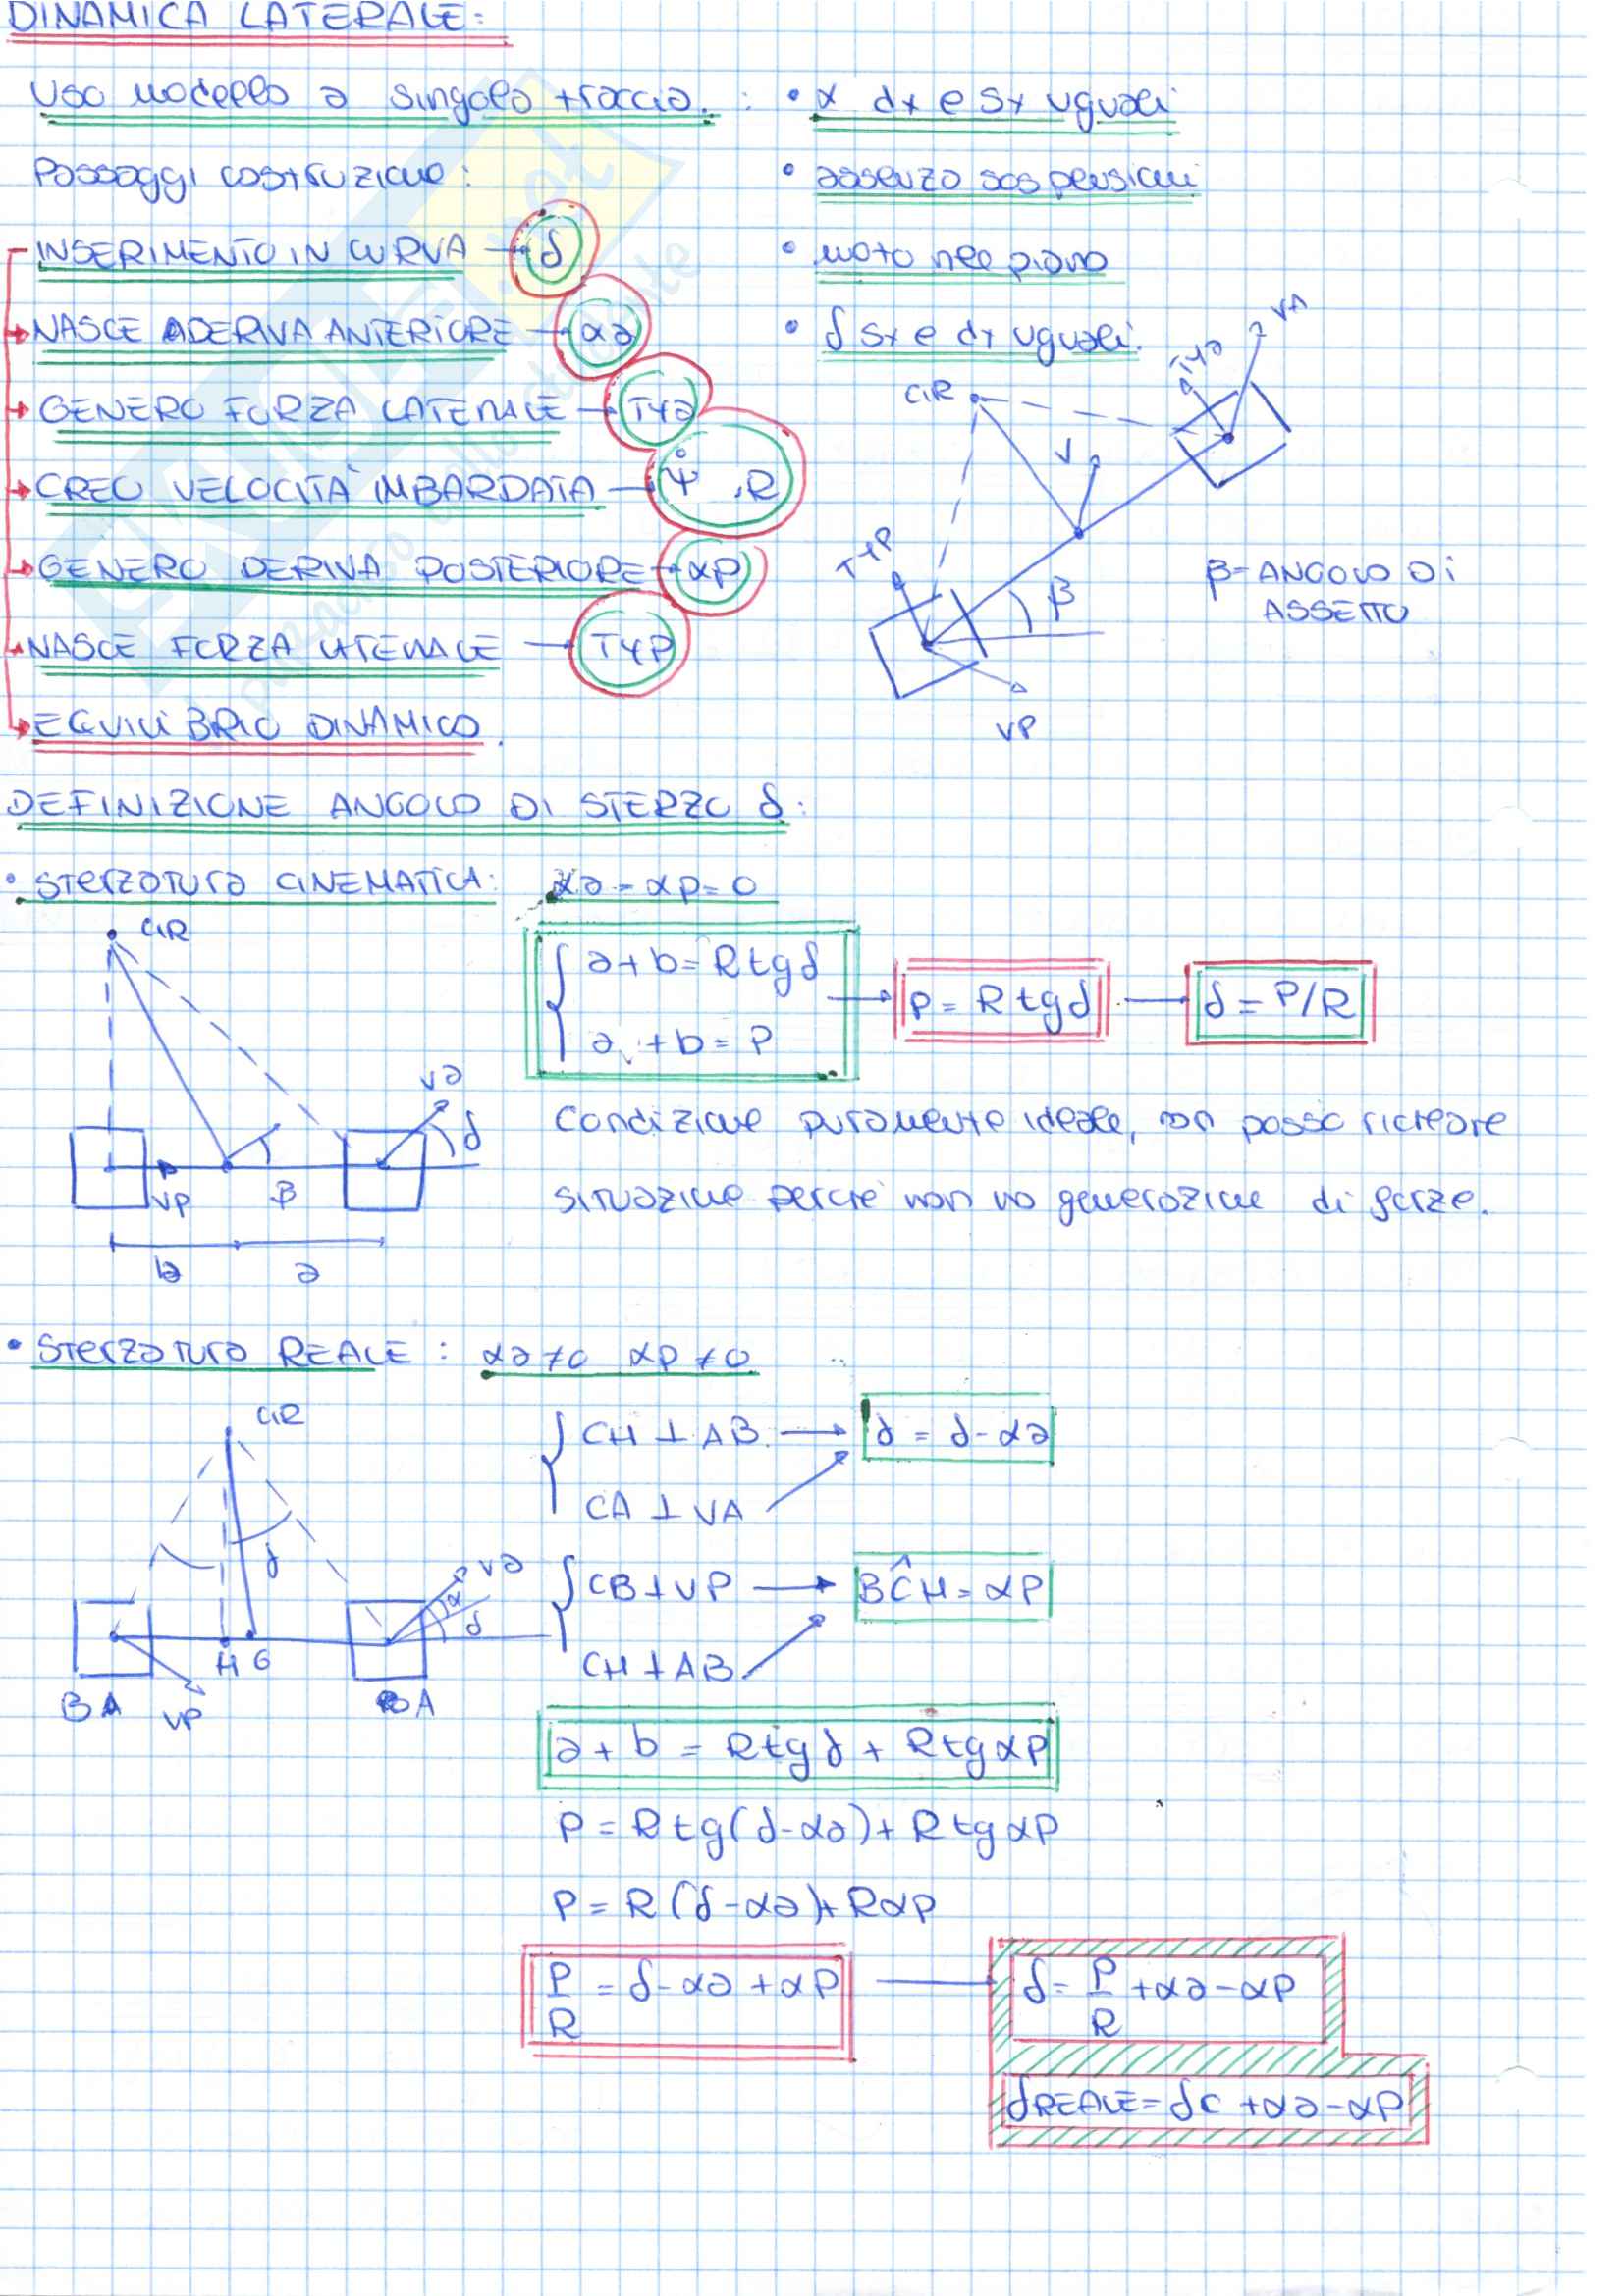 DINAMICA LATERALE:
Uso modello a singola traccia. : • α dx e sx uguali
Passaggi costruzione:
• assenza sospensioni
INSERIMENTO IN CURVA → δ
• moto nel piano
NASCE DERIVA ANTERIORE → αa
• δ sx e dx uguali.
GENERO FORZA LATERALE → Tya
CREO VELOCITÀ IMBARDATA → ψ̇ , R
GENERO DERIVA POSTERIORE → αP
NASCE FORZA LATERALE → TyP
EQUILIBRIO DINAMICO.
CIR
VA
Tya
V
TyP
β
VP
β = ANGOLO DI
ASSETTO
DEFINIZIONE ANGOLO DI STERZO δ:
• STERZATURA CINEMATICA: αa = αP = 0
CIR
a + b = R tg δ
a + b = P
→ P = R tg δ → δ = P/R
Va
δ
VP
β
b
a
Condizione puramente ideale, non posso ricreare
situazione perché non ho generazione di forze.
• STERZATURA REALE: αa ≠ 0 αP ≠ 0
CIR
CH ⊥ AB → δ = δ - αa
CA ⊥ VA
γ
Va
α
δ
CB ⊥ VP → BĈH = αP
CH ⊥ AB
H G
B A
VP
A
a + b = R tg γ + R tg αP
P = R tg (δ - αa) + R tg αP
P = R (δ - αa) + R αP
P/R = δ - αa + αP → δ = P/R + αa - αP
δREALE = δc + αa - αP